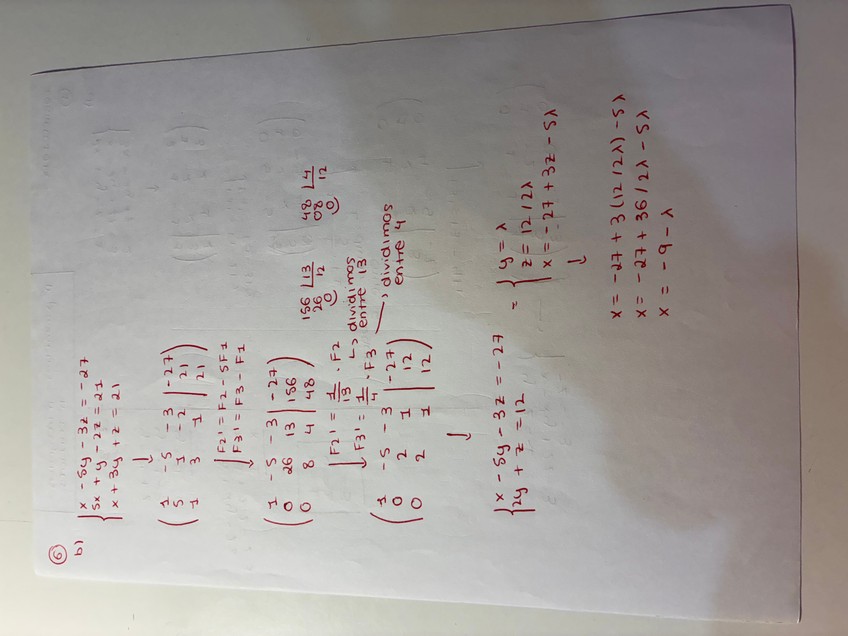 6
b)
x - 5y - 3z = -27
5x + y - 2z = 21
x + 3y + z = 21
↓
1 -5 -3 | -27
5 1 -2 | 21
1 3 1 | 21
↓ F2' = F2 - 5F1
F3' = F3 - F1
1 -5 -3 | -27
0 26 13 | 156
0 8 4 | 48
156 | 13
26 12
0
48 | 4
08 12
0
↓ F2' = 1/13 · F2
↳ dividimos entre 13
F3' = 1/4 · F3
→ dividimos entre 4
1 -5 -3 | -27
0 2 1 | 12
0 2 1 | 12
↓
x - 5y - 3z = -27
2y + z = 12
= y = λ
z = 12 / 2λ
x = -27 + 3z - 5λ
↓
x = -27 + 3(12 / 2λ) - 5λ
x = -27 + 36 / 2λ - 5λ
x = -9 - λ